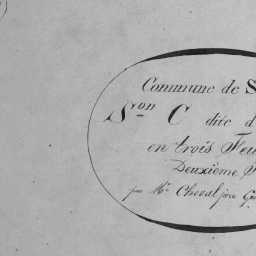 Commune de S
Son C dite d
en trois Feu
Deuxième F
par Mr. Cheval père Gé